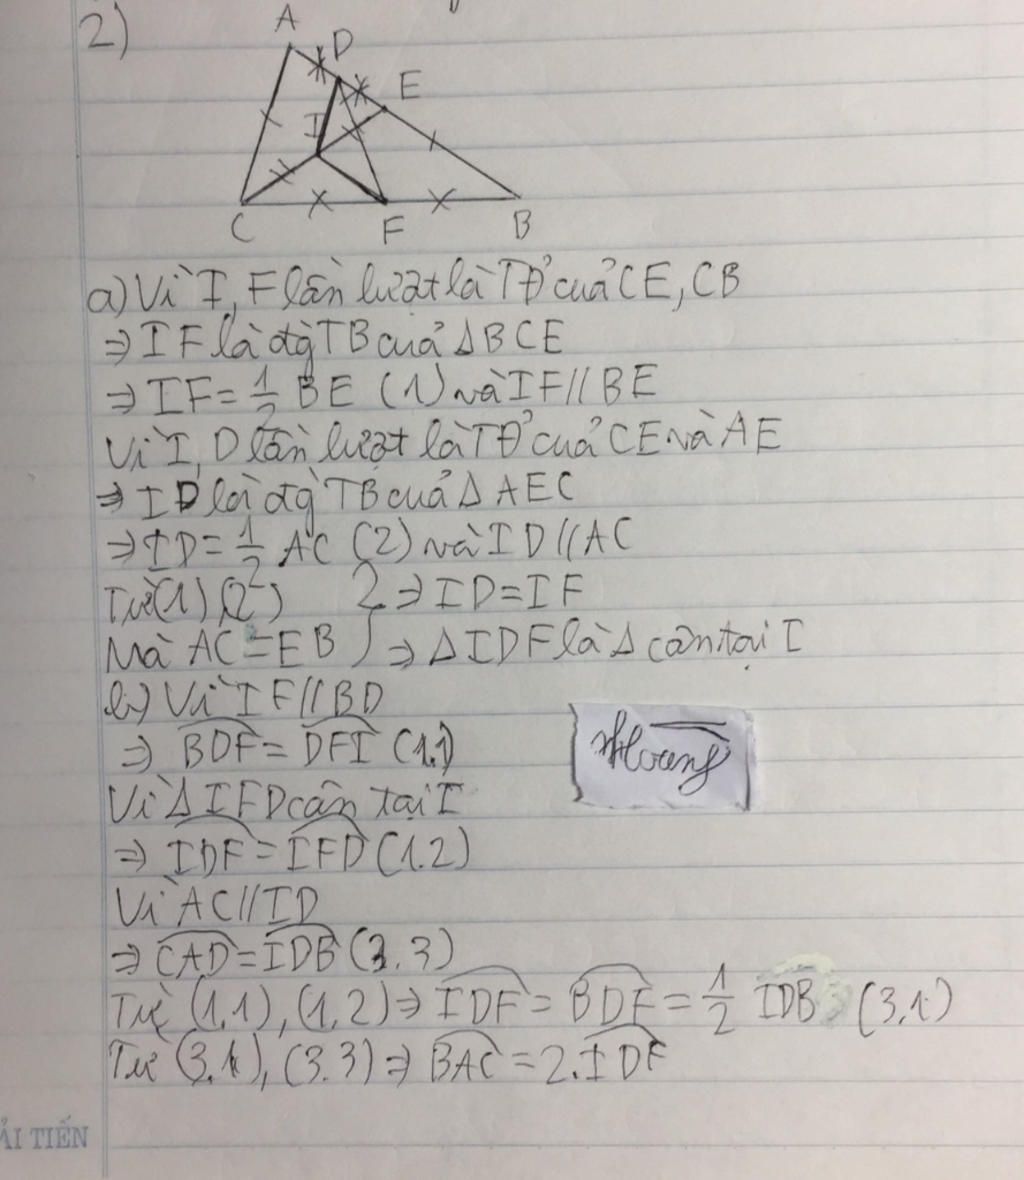 2)
A
D
E
I
C
F
B
a) Vì I, F lần lượt là TĐ' của CE, CB
⇒ IF là đg TB của Δ BCE
⇒ IF = 1/2 BE (1) và IF // BE
Vì I, D lần lượt là TĐ' của CE và AE
⇒ ID là đg TB của Δ AEC
⇒ ID = 1/2 AC (2) và ID // AC
Từ (1) (2) } ⇒ ID = IF
Mà AC = EB } ⇒ Δ IDF là Δ cân tại I
b) Vì IF // BD
⇒ BDF = DFI (1.1)
Vì Δ IFD cân tại I
Hoang
⇒ IDF = IFD (1.2)
Vì AC // ID
⇒ CAD = IDB (3.3)
Từ (1.1), (1,2) ⇒ IDF = BDF = 1/2 IDB (3,1)
Từ (3.1), (3.3) ⇒ BAC = 2.IDF
ẢI TIẾN